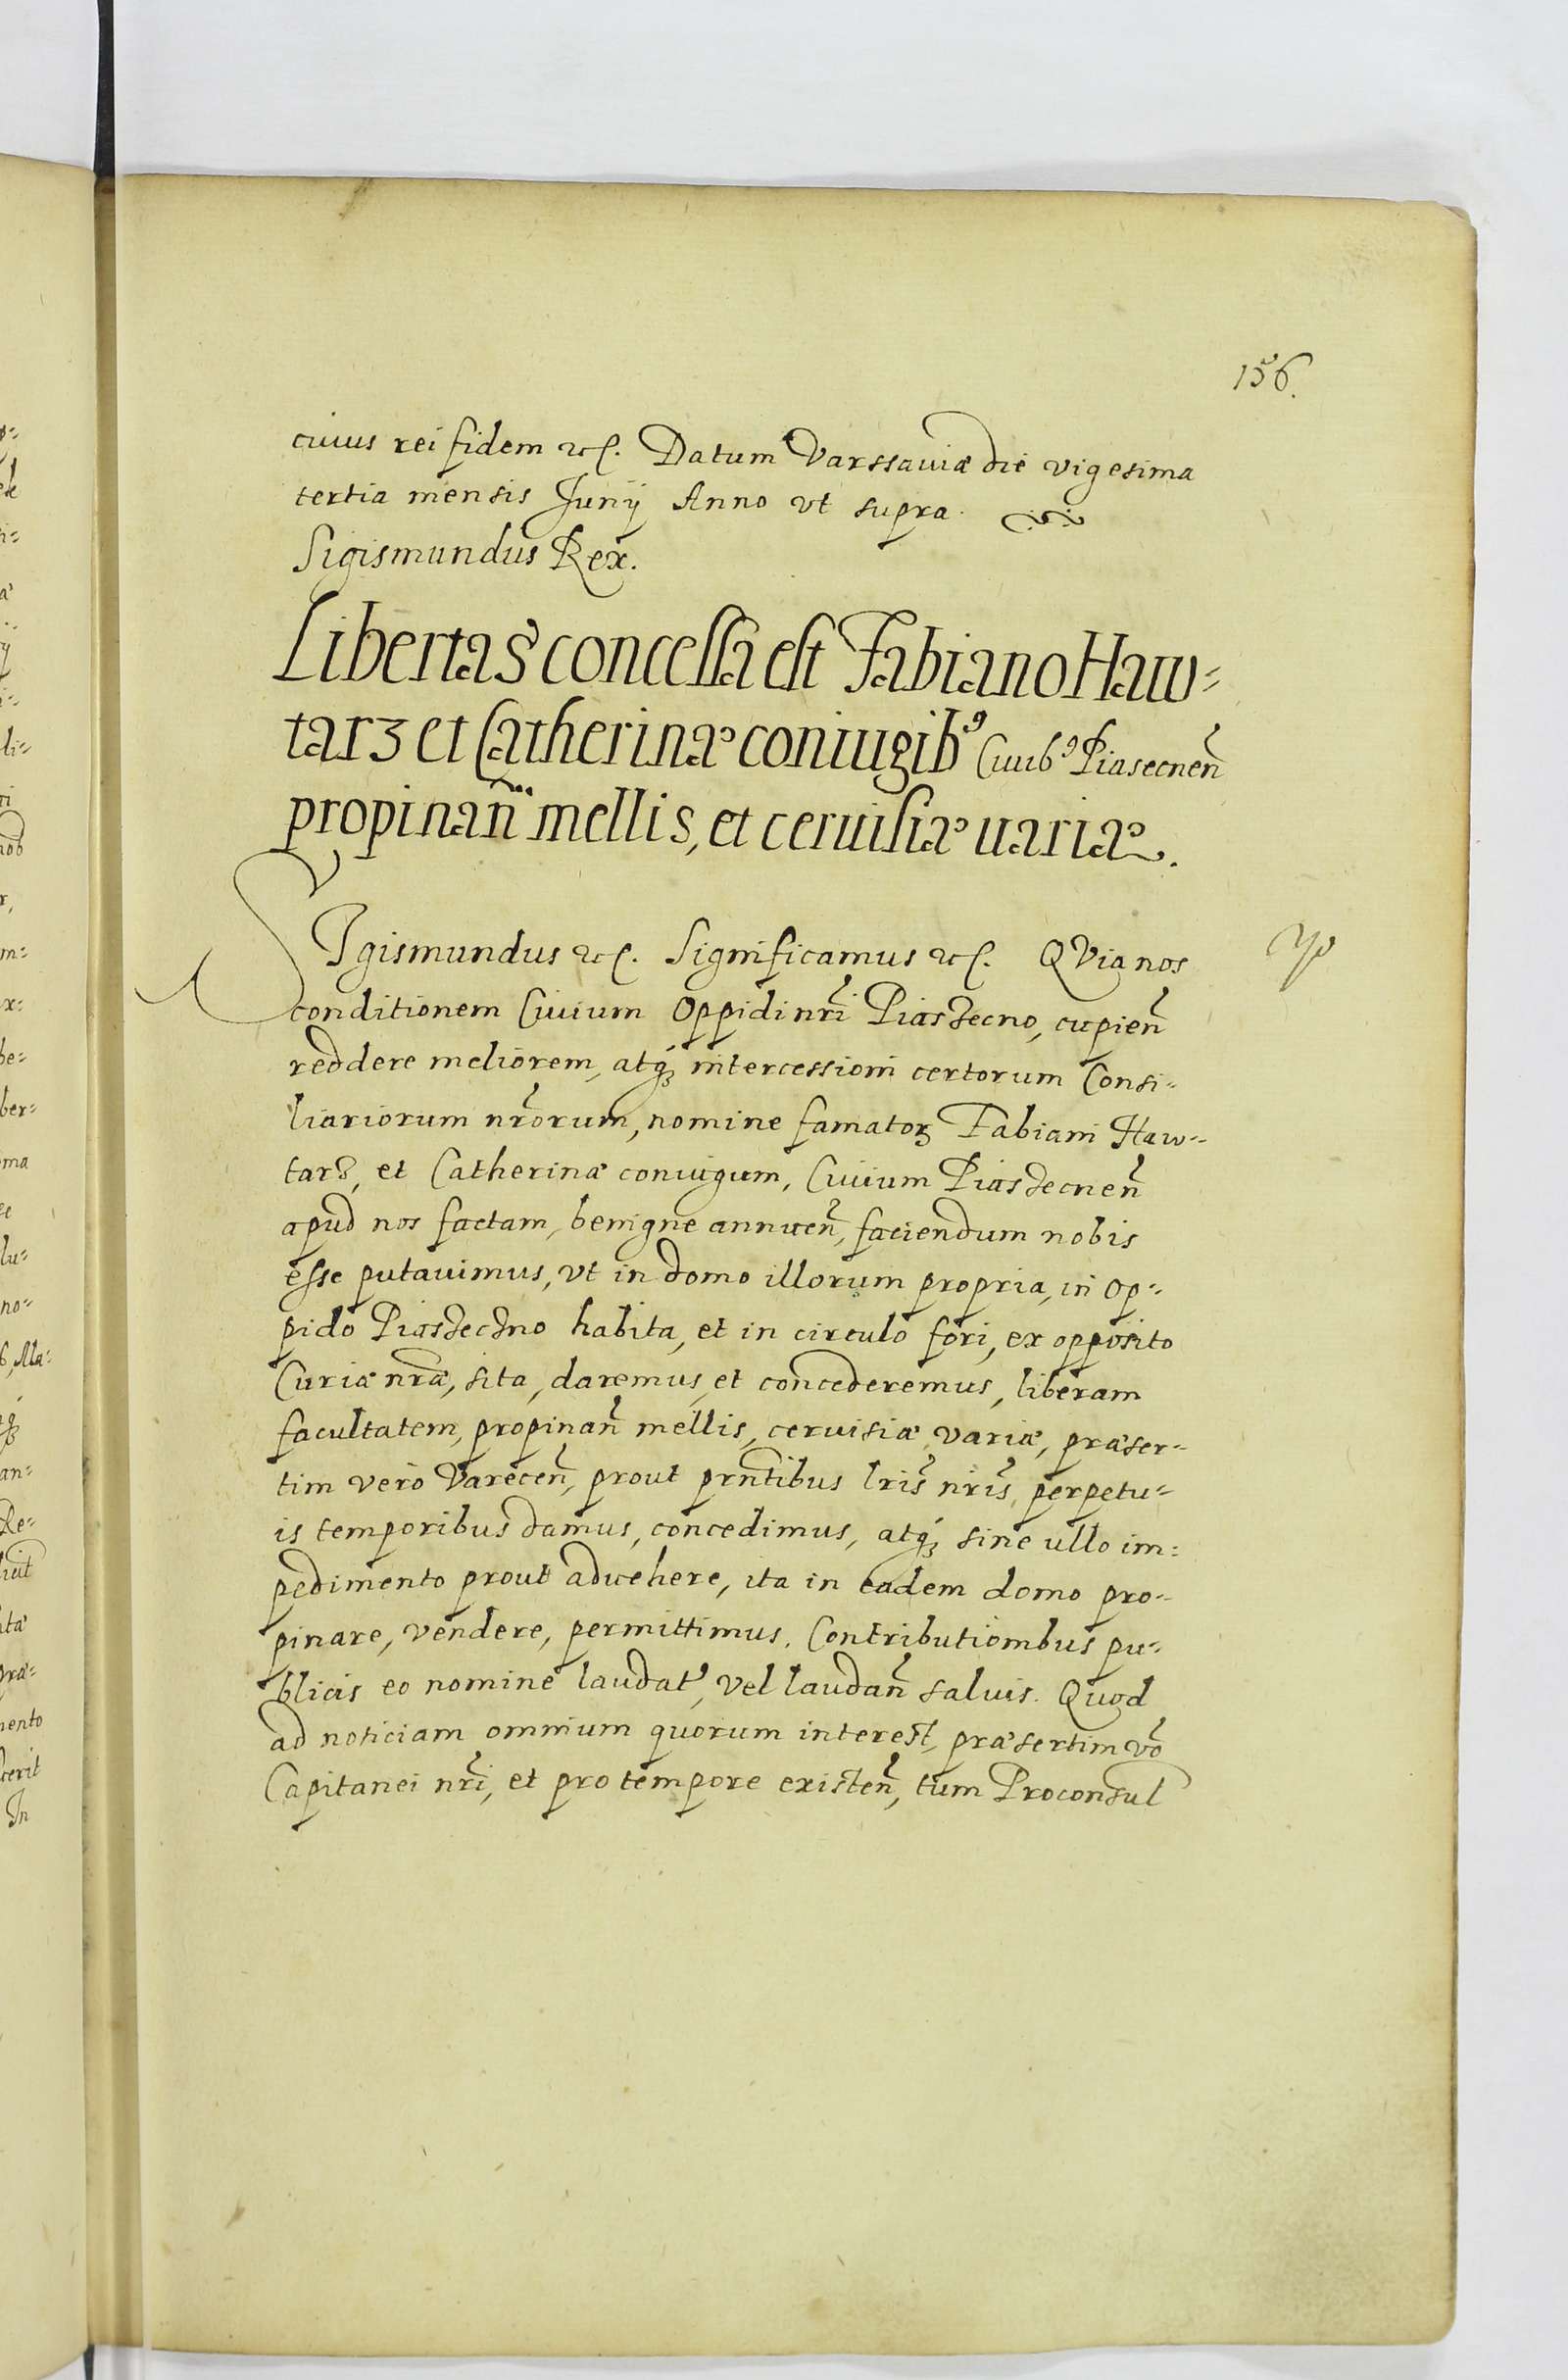 156.
cuius rei fidem etc. Datum Varssauiæ die vigesima
tertia mensis Junij Anno vt supra.
Sigismundus Rex.
Libertas concessa est Fabiano Haw=
tarz et Catherinæ coniugibꝰ Ciuibꝰ Piasecneñ
propinañ mellis, et ceruisiæ uariæ.
SJgismundus etc. Significamus etc. QVia nos
conditionem Ciuium Oppidi nr̃i Piasdecno, cupieñ
reddere meliorem, atqꝫ intercessioni certorum Consi=
liariorum nr̃orum, nomine famatoꝝ Fabiani Haw=
tarz, et Catherinæ coniugum, Ciuium Piasdecneñ
apud nos factam, benigne annueñ, faciendum nobis
esse putauimus, vt in domo illorum propria, in Op=
pido Piasdeczno habita, et in circulo fori, ex opposito
Curiæ nr̃æ, sita, daremus, et concederemus, liberam
facultatem, propinañ mellis, ceruisiæ variæ, præser=
tim vero Vareceñ, prout pr̃ntibus lr̃is nr̃is, perpetu=
is temporibus damus, concedimus, atqꝫ sine ullo im=
pedimento prout aduehere, ita in eadem domo pro=
pinare, vendere, permittimus. Contributionibus pu=
blicis eo nomine laudat̃, vel laudañ saluis. Quod
ad noticiam omnium quorum interest, præsertim vo͂
Capitanei nr̃i, et pro tempore existeñ, tum Proconsul